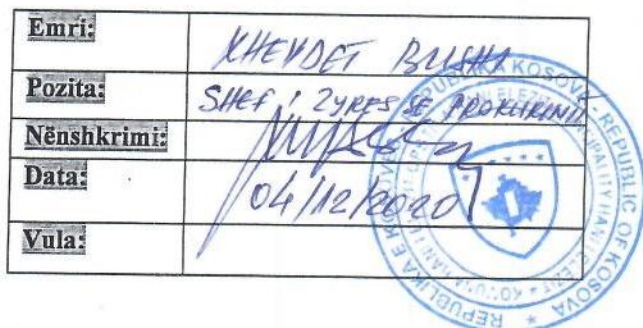 Emri: XHEVDET BUSHI
Pozita: SHEF I ZYRES SE PROKURIMIT
Nënshkrimi:
Data: 04/12/2020
Vula:
REPUBLIKA E KOSOVËS - REPUBLIC OF KOSOVA
HANI I ELEZIT